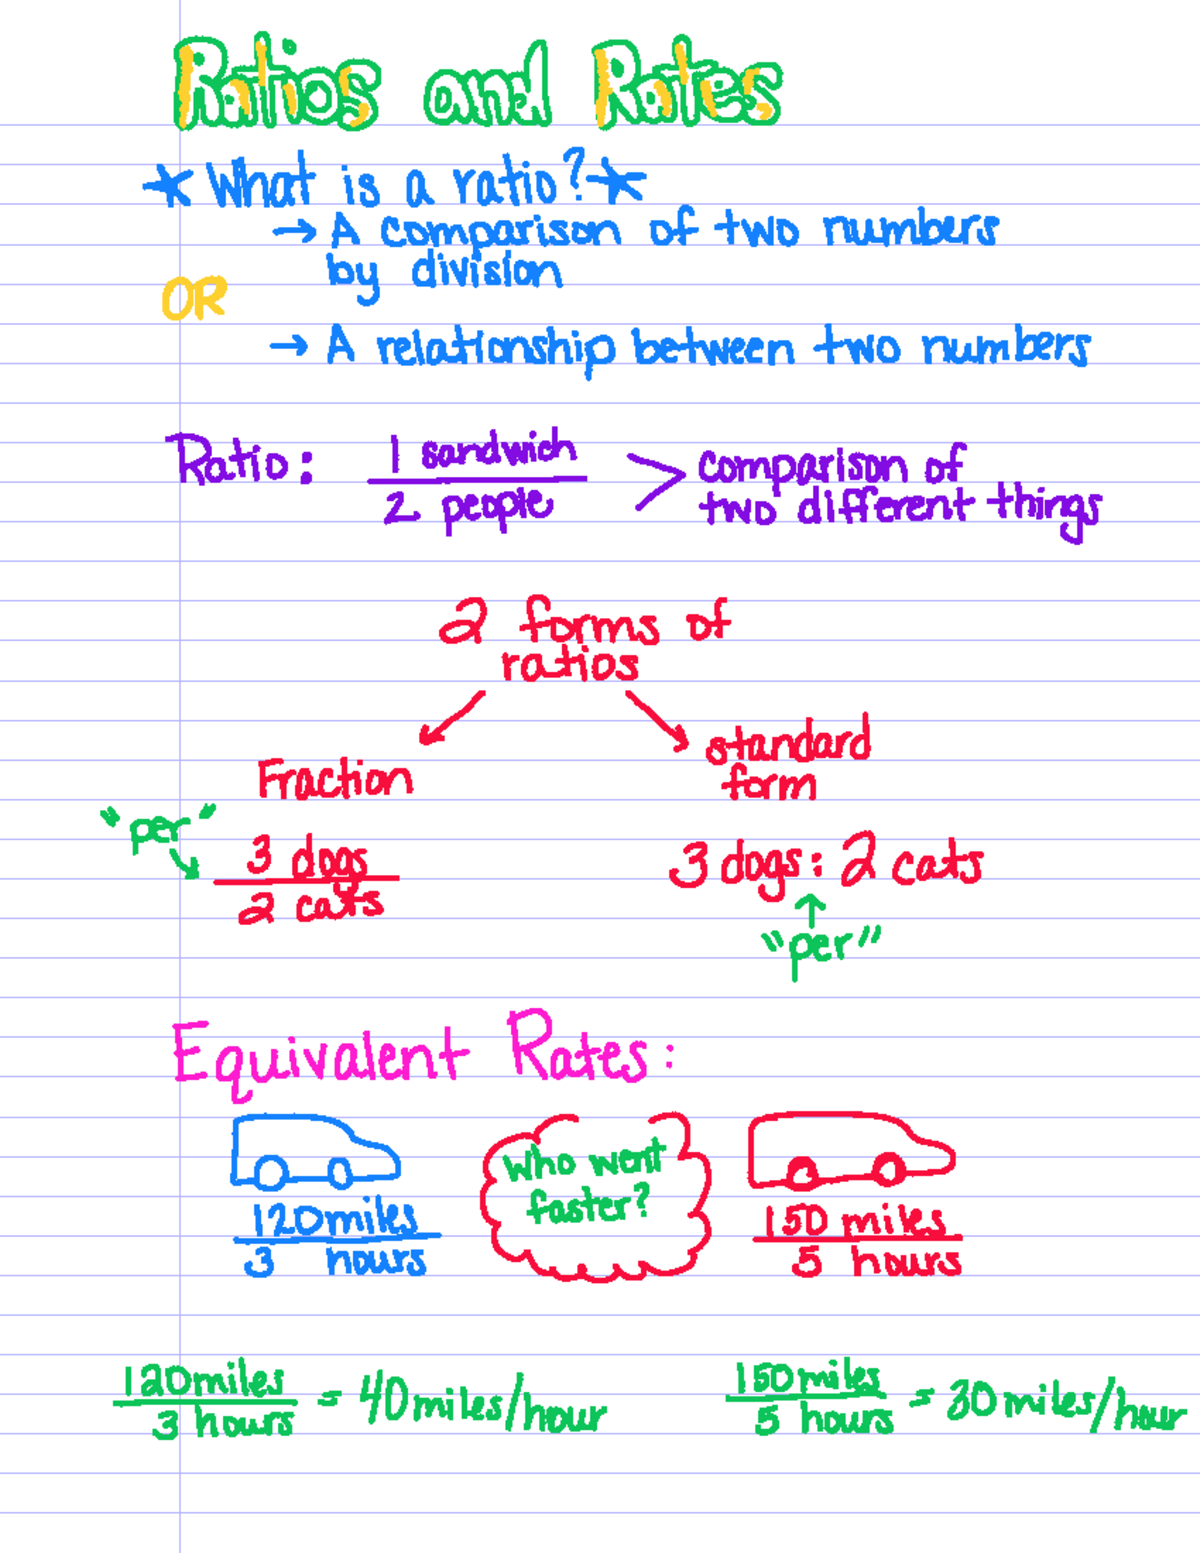 Ratios and Rates
* What is a ratio? *
→ A comparison of two numbers
by division
OR
→ A relationship between two numbers
Ratio: 1 sandwich
2 people
> comparison of
two different things
2 forms of
ratios
Fraction
standard
form
"per"
3 dogs
2 cats
3 dogs: 2 cats
"per"
Equivalent Rates:
120 miles
3 hours
Who went
faster?
150 miles
5 hours
120 miles
3 hours
= 40 miles/hour
150 miles
5 hours
= 30 miles/hour